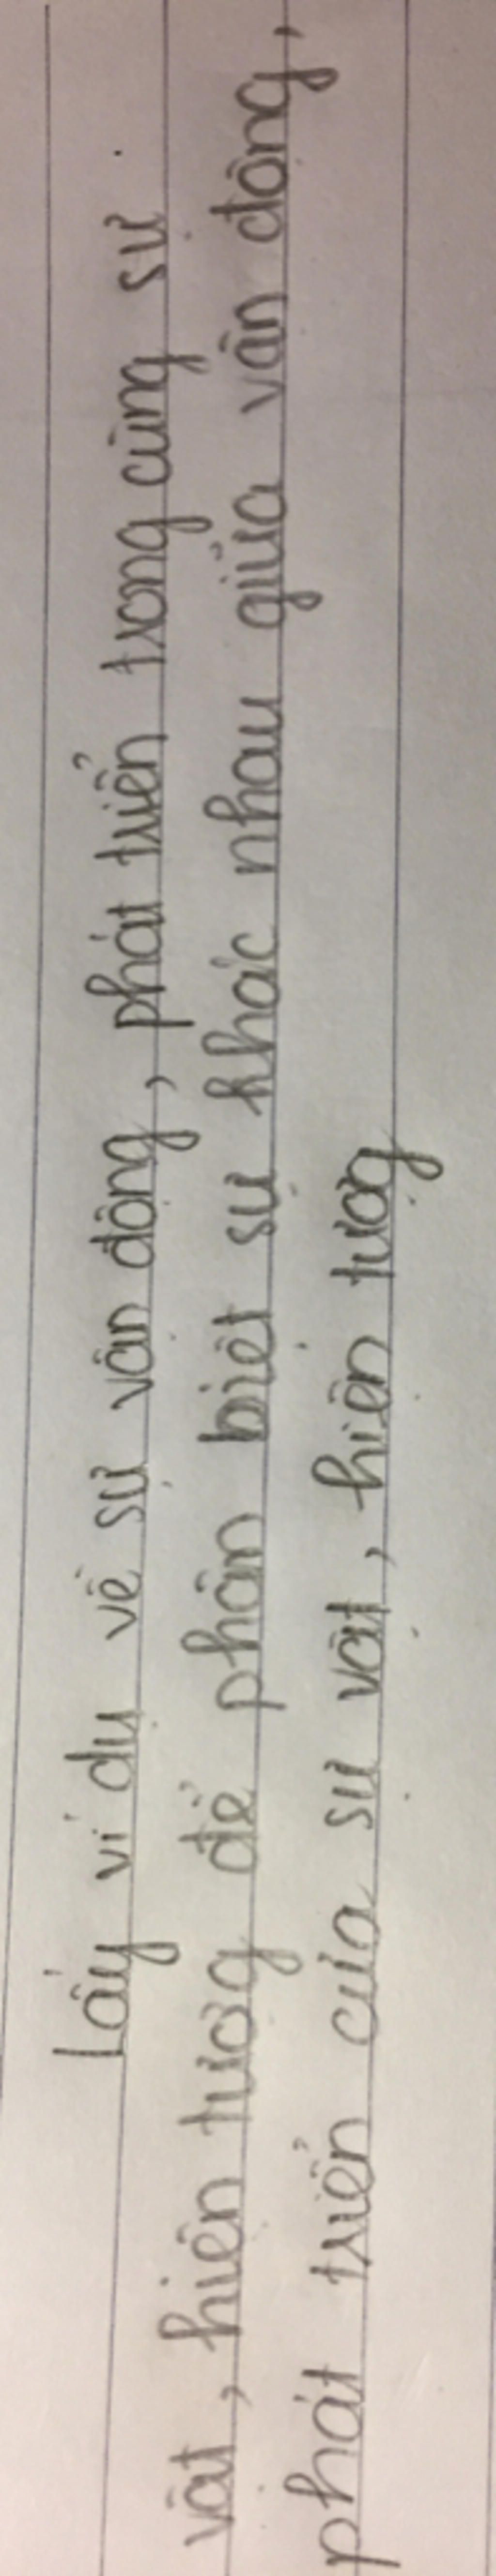 Lấy ví dụ về sự vận động, phát triển trong cùng sự
vật, hiện tượg để phân biệt sự khác nhau giữa vận động,
phát triển của sự vật, hiện tượg